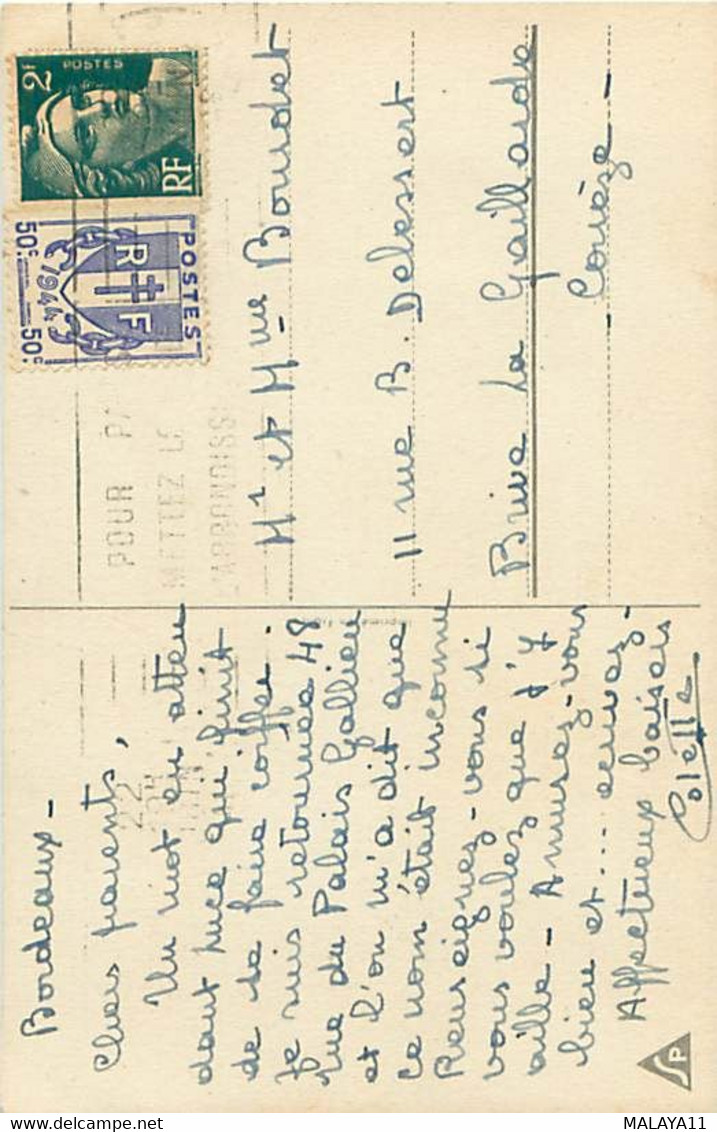 Bordeaux –
Chers parents,
Un mot en atten
dant Luce qui finit
de se faire coiffer.
Je suis retournée 48
rue du Palais Gallien
et l'on m'a dit que
ce nom était inconnu
Renseignez-vous si
vous voulez que j'y
aille – Amusez-vous
bien et... écrivez –
Affectueux baisers
Colette
2F
POSTES
RF
POSTES
RF
1944
50c 50c
POUR PA
METTEZ LE
L'ARRONDISS
22
JUIN
Mr et Mme Bourdet
11 rue B. Delessert
Brive La Gaillarde
Corrèze –
SP
MALAYA11